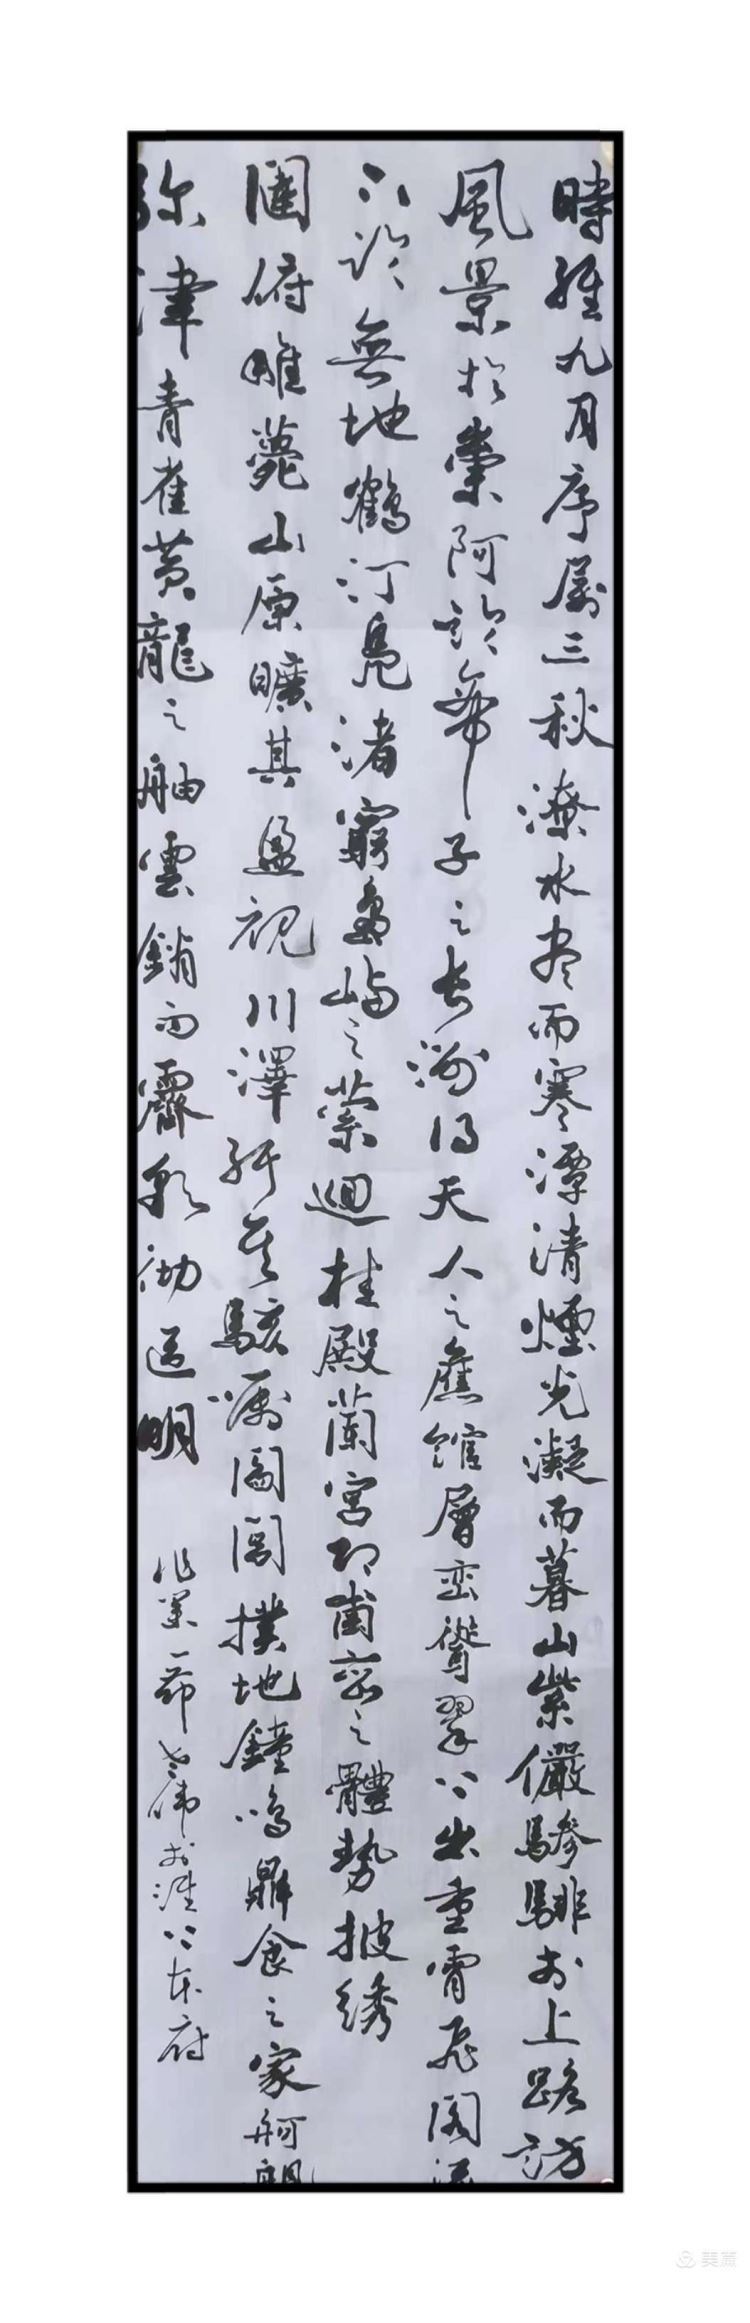 時維九月序属三秋潦水尽而寒潭清煙光凝而暮山紫儼驂騑於上路訪
風景於崇阿臨帝子之長洲得天人之舊館層巒聳翠上出重霄飛閣流
下臨無地鶴汀鳧渚窮島嶼之縈迴桂殿蘭宮即岡巒之體勢披绣
闥俯雕甍山原曠其盈視川澤紆其駭嘱閭閻撲地鐘鳴鼎食之家舸艦
弥津青雀黄龍之舳雲銷雨霽彩彻區明
作業一節
美篇